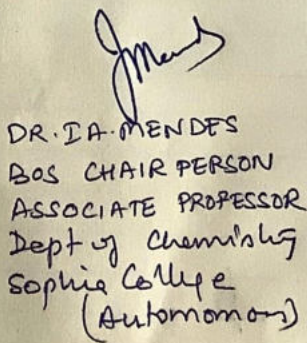 JMends
DR. I A. MENDES
BOS CHAIR PERSON
ASSOCIATE PROFESSOR
Dept of Chemistry
Sophia College
(Autonomous)